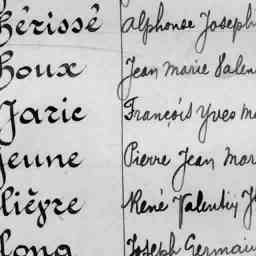 hérissé Alphonse Joseph
houx Jean Marie Valen
Jarie François Yves Ma
Jeune Pierre Jean Mar
lièvre René Valentin J
long Joseph Germain